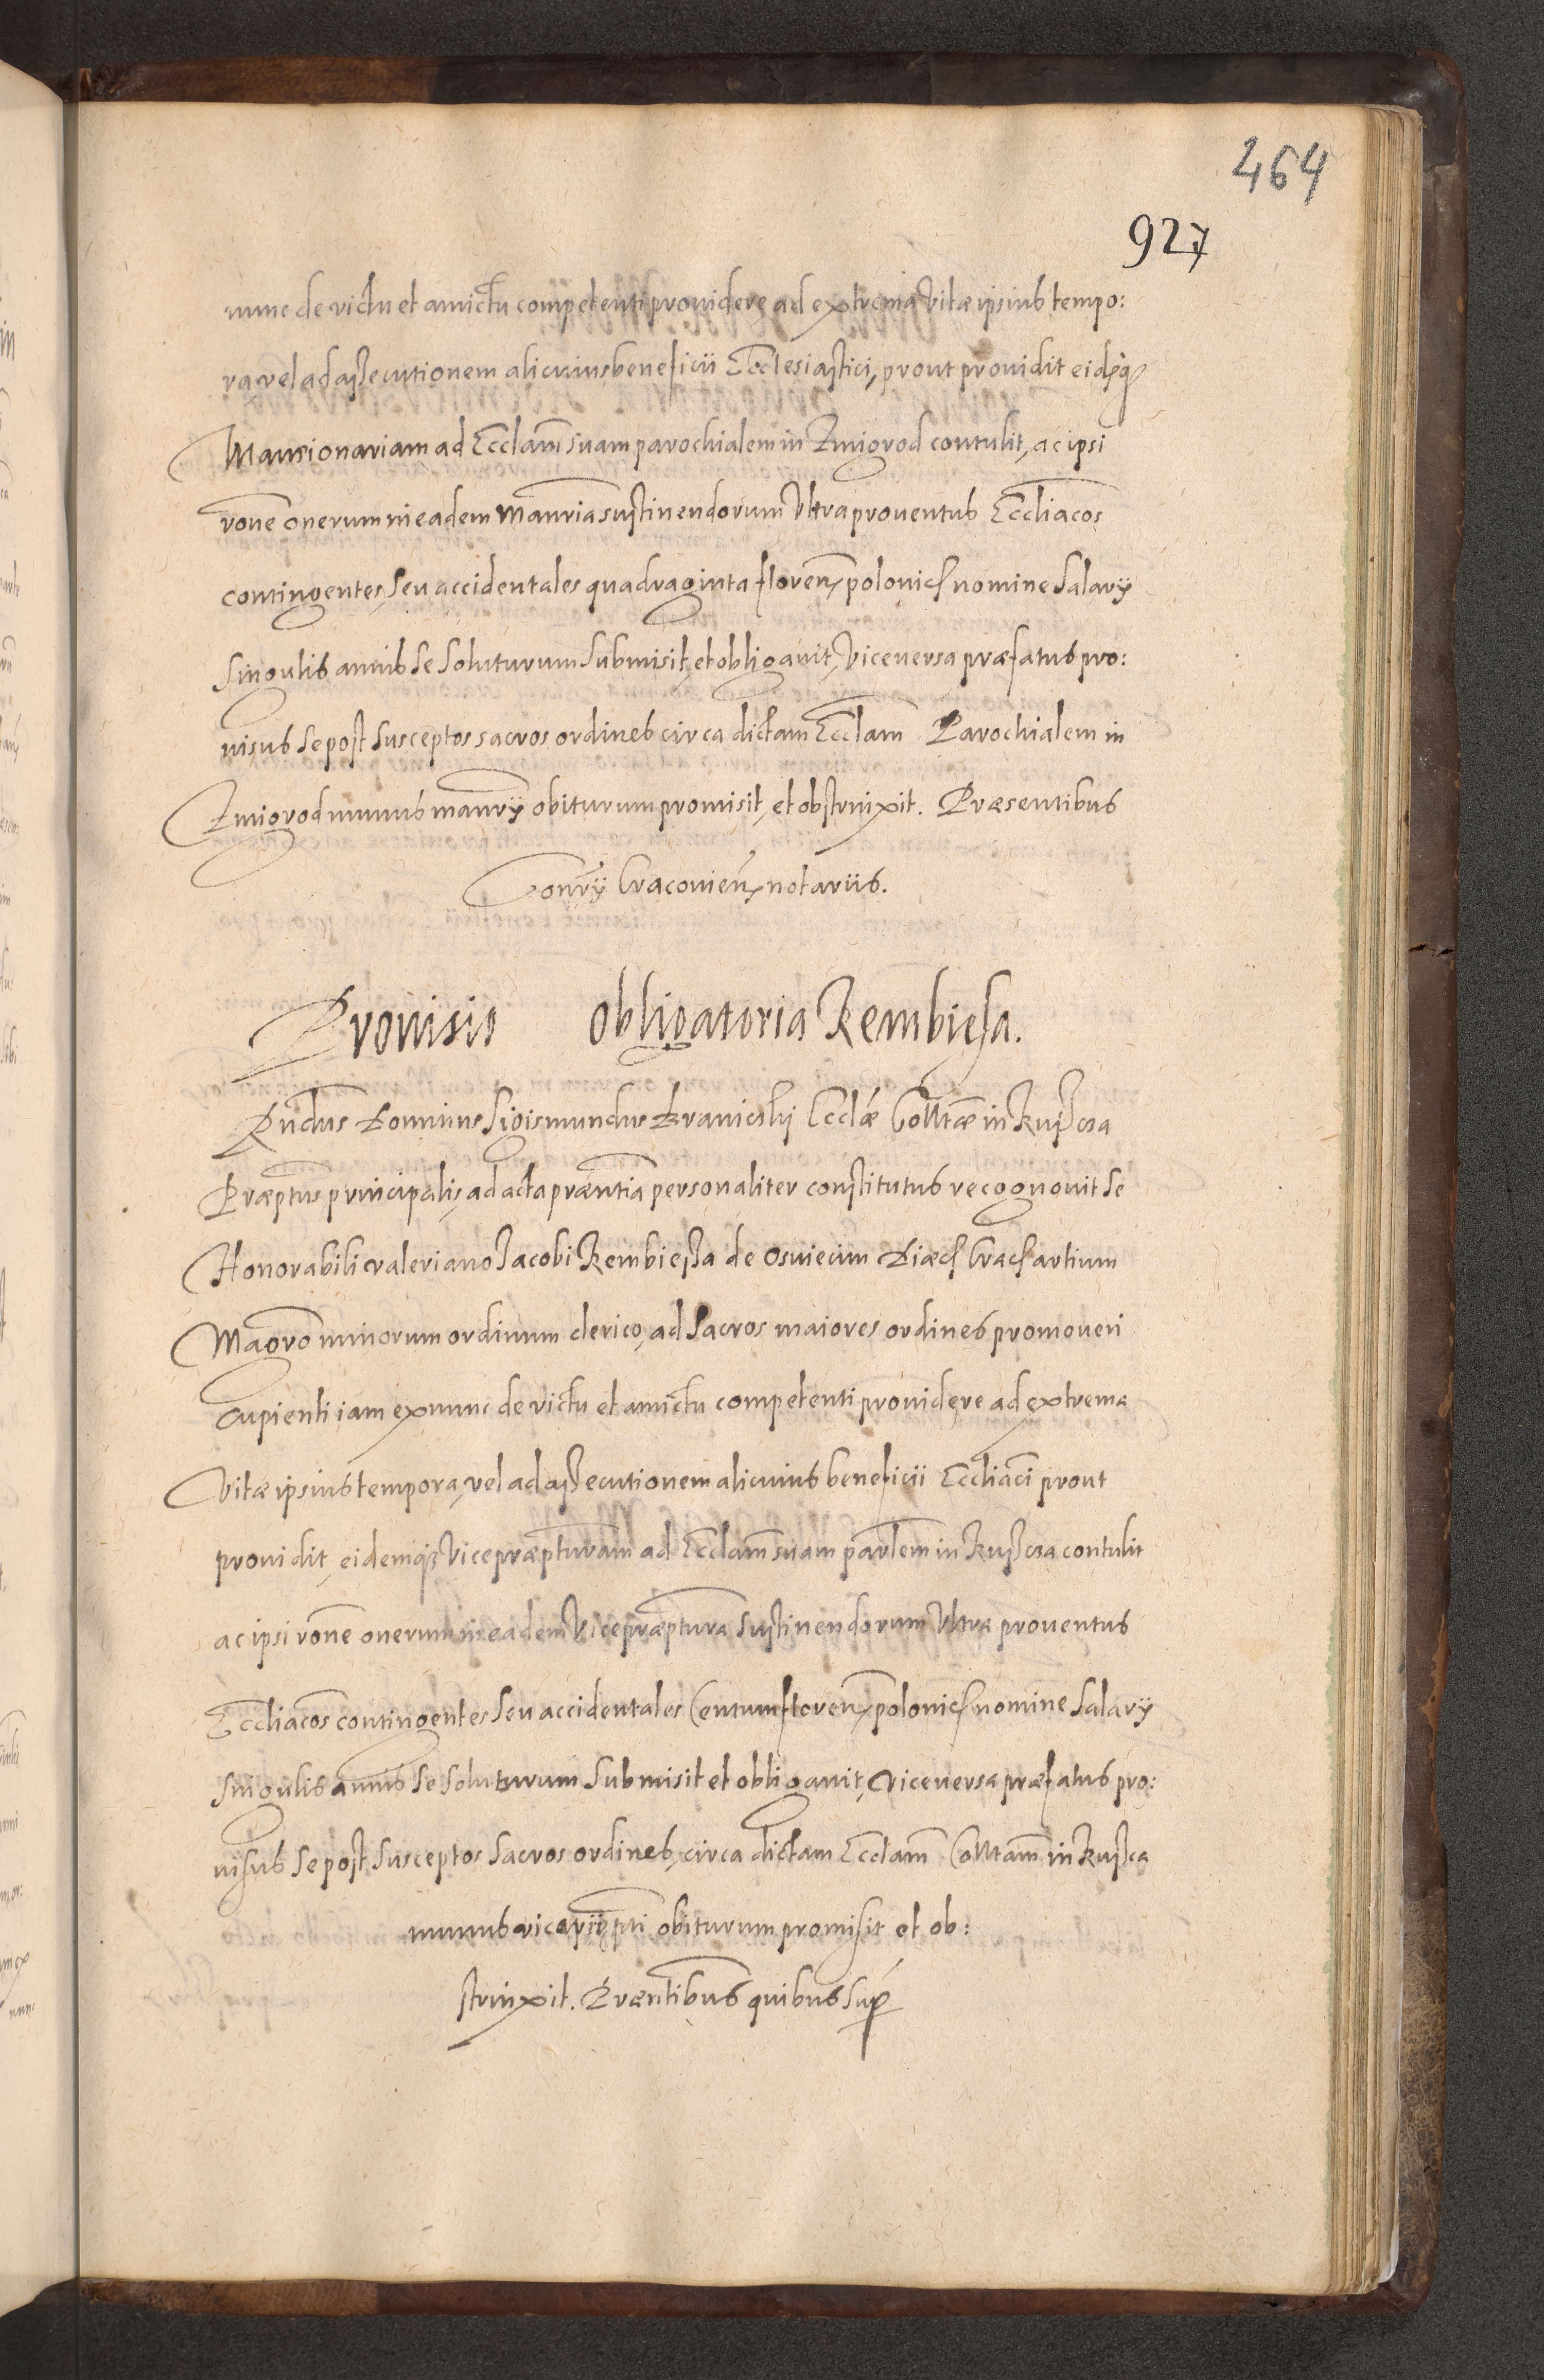 464
927
nunc de victu et amictu competenti prouidere ad extrema vitæ ipsius tempo:
ra vel ad assecutionem alicuius beneficii Ecclesiastici, prout prouidit eidq̃
Mansionariam ad Eccłam suam parochialem in Zmigrod contulit, ac ipsi
rõne onerum in eadem Mansria sustinendorum Vltra prouentus Eccliacos
contingentes, seu accidentales quadraginta floren polonic nomine Salarÿ
Singulis annis se soluturum submisit, et obligauit, Viceuersa præfatus pro:
uisus se post susceptos sacros ordines circa dictam Ecclam Parochialem in
Zmigrod munus mansrÿ obiturum promisit, et obstrinxit. Præsentibus
Consrÿ Cracouien notariis.
Prouisio obligatoria Rembiesa.
Rndus Dominus Sigismundus Branicily Ecclæ Colltæ in
Præptus principalis, ad acta præntia personaliter constitutus recognouit se
Honorabili Valeriano Jacobi Rembiessa de Osuiecim Diæc Crac artium
Magro minorum ordinum clerico, ad Sacros maiores ordines promoueri
cupienti iam exnunc de victu et amictu competenti prouidere ad extrema
Vitæ ipsius tempora, vel ad assecutionem alicuius beneficii Eccliaci prout
prouidit, eidemq3 Vicepræpturam ad Ecclam suam parlem in contulit
ac ipsi rõne onerum in eadem Vicepræptura sustinendorum Vltra prouentus
Eccliacos contingentes seu accidentales Centum floren polonic nomine Salarÿ
singulis annis se soluturum submisit et obligauit, viceuersa præfatus pro:
uisus se post susceptos Sacros ordines, circa dictam Ecclam Colltam in
munus obiturum promisit et ob:
strinxit. Præntibus quibus sup